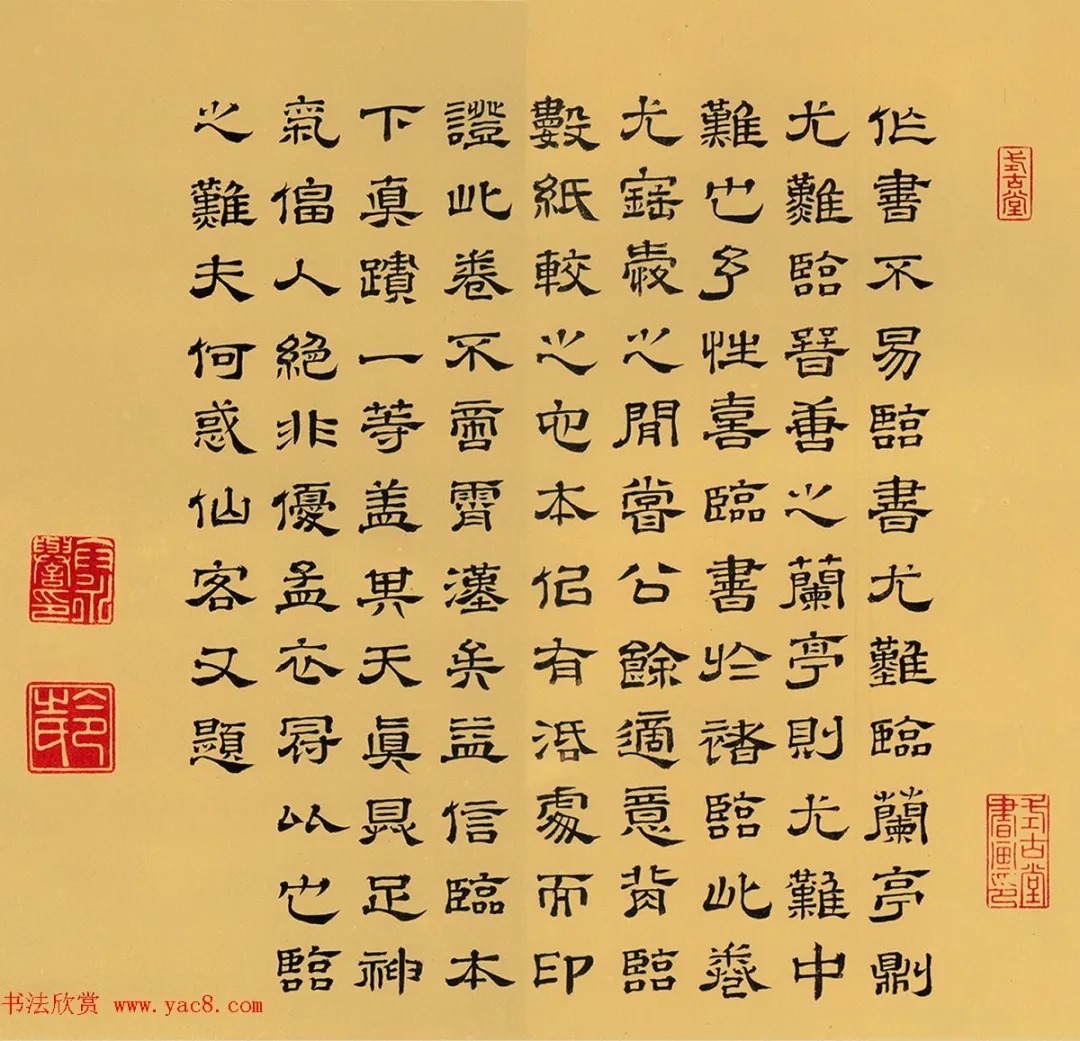 作書不易臨書尤難臨蘭亭則
尤難臨晉善之蘭亭則尤難中
難也予性喜臨書於褚臨此卷
尤寶愛之間嘗公餘適意背臨
數紙較之他本似有活處而印
證此卷不啻霄漢矣益信臨本
下真蹟一等盖其天真具足神
氣偪人絕非優孟衣冠比也臨
之難夫何惑仙客又題
式古堂
式古堂書画印
卞永譽印
书法欣赏 www.yac8.com